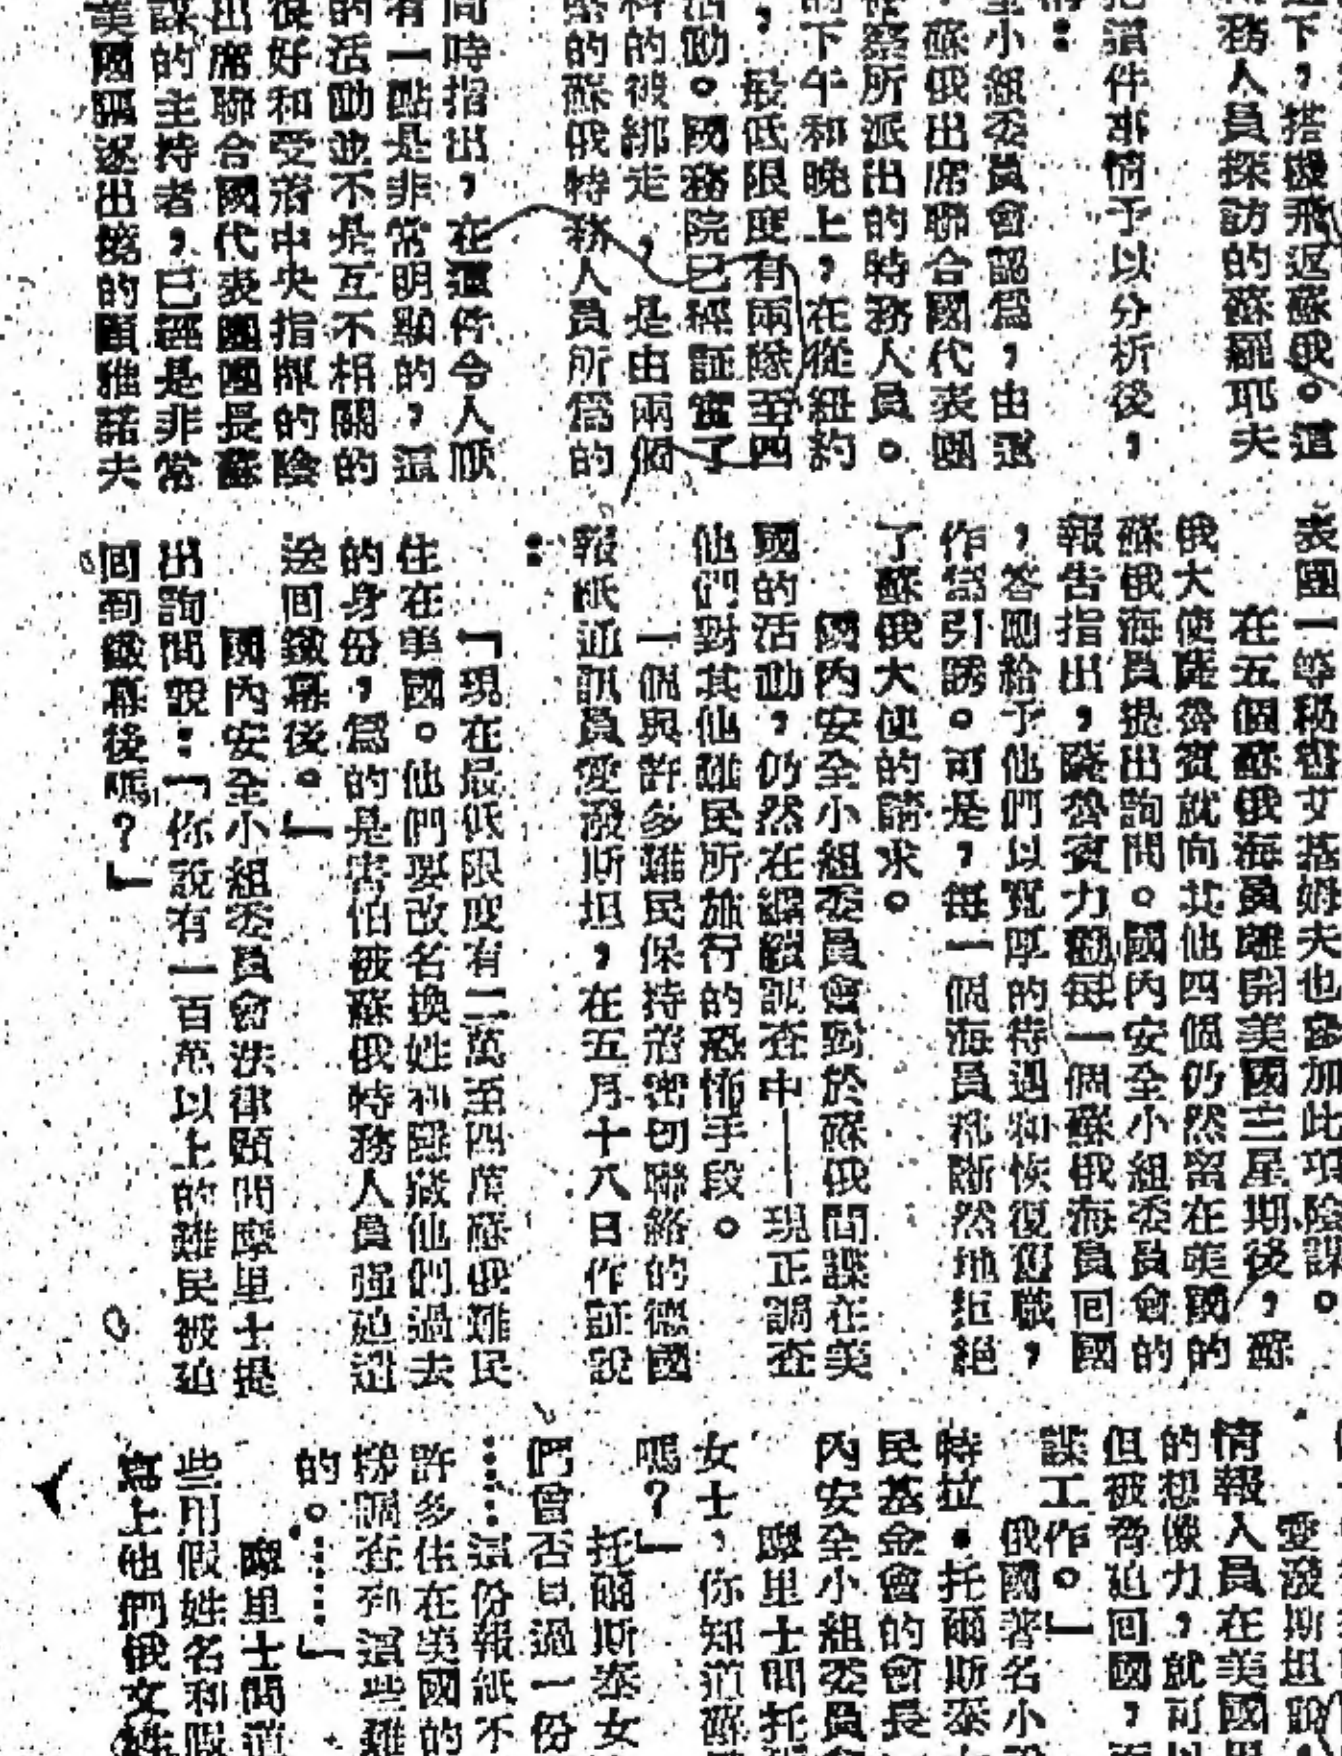 下，搭機飛返蘇俄。這
務人員探訪的蘇羅耶夫
把這件事情予以分析後，
：
全小組委員會認爲，由這
蘇俄出席聯合國代表團
使察所派出的特務人員。
的下午和晚上，在從紐約
，最低限度有兩隊至四
活動。國務院已經証實了
科的被綁走，是由兩個
蘇俄特務人員所爲的
同時指出，在這件令人
有一點是非常明顯的，這
的活動並不是互不相關的
很好和受着中央指揮的陰
出席聯合國代表團團長蘇
謀的主持者，已經是非常
美國驅逐出境的顧雅諾夫
表團一等秘書艾基姆夫也參加此項陰謀。
在五個蘇俄海員離開美國三星期後，蘇
俄大使薩魯賓就向其他四個仍然留在美國的
蘇俄海員提出詢問。國內安全小組委員會的
報告指出，薩魯賓力勸每一個蘇俄海員回國
，答應給予他們以寬厚的待遇和恢復舊職，
作爲引誘。可是，每一個海員都斷然地拒絕
了蘇俄大使的請求。
國內安全小組委員會對於蘇俄間諜在美
國的活動，仍然在繼續調查中——現正調查
他們對其他難民所施行的恐怖手段。
一個與許多難民保持着密切聯絡的德國
報紙通訊員愛潑斯坦，在五月十八日作証說
：
「現在最低限度有二萬至四萬蘇俄難民
住在美國。他們要改名換姓和隱藏他們過去
的身份，爲的是害怕被蘇俄特務人員强迫遣
送回鐵幕後。」
國內安全小組委員會法律顧問摩里士提
出詢問說：「你說有一百萬以上的難民被迫
回到鐵幕後嗎？」
愛潑斯坦說，
情報人員在美國
的想像力，就可以
但被脅迫回國，
諜工作。」
俄國著名小說
特拉·托爾斯泰
民基金會的會長
內安全小組委員
摩里士問托
女士，你知道蘇
嗎？」
托爾斯泰女
們曾否見過一份
……這份報紙不
許多住在美國的
務調查到這些難
的。……」
摩里士問道
些用假姓名和假
寫上他們俄文姓